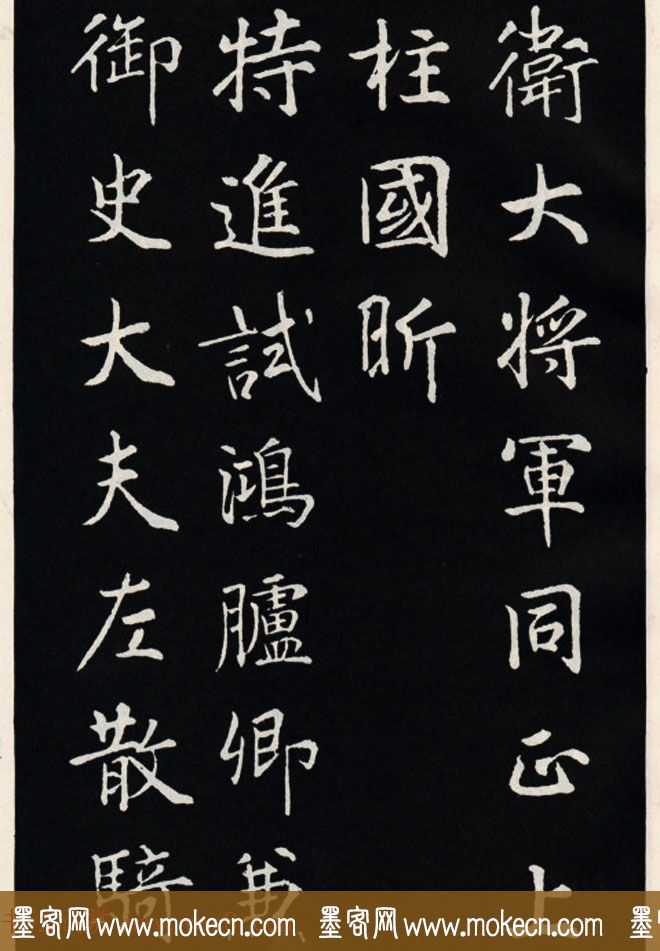 衛大將軍同正上
柱國昕
特進試鴻臚卿兼
御史大夫左散騎
墨客网 www.mokecn.com 墨客网 www.mokecn.com 墨客网